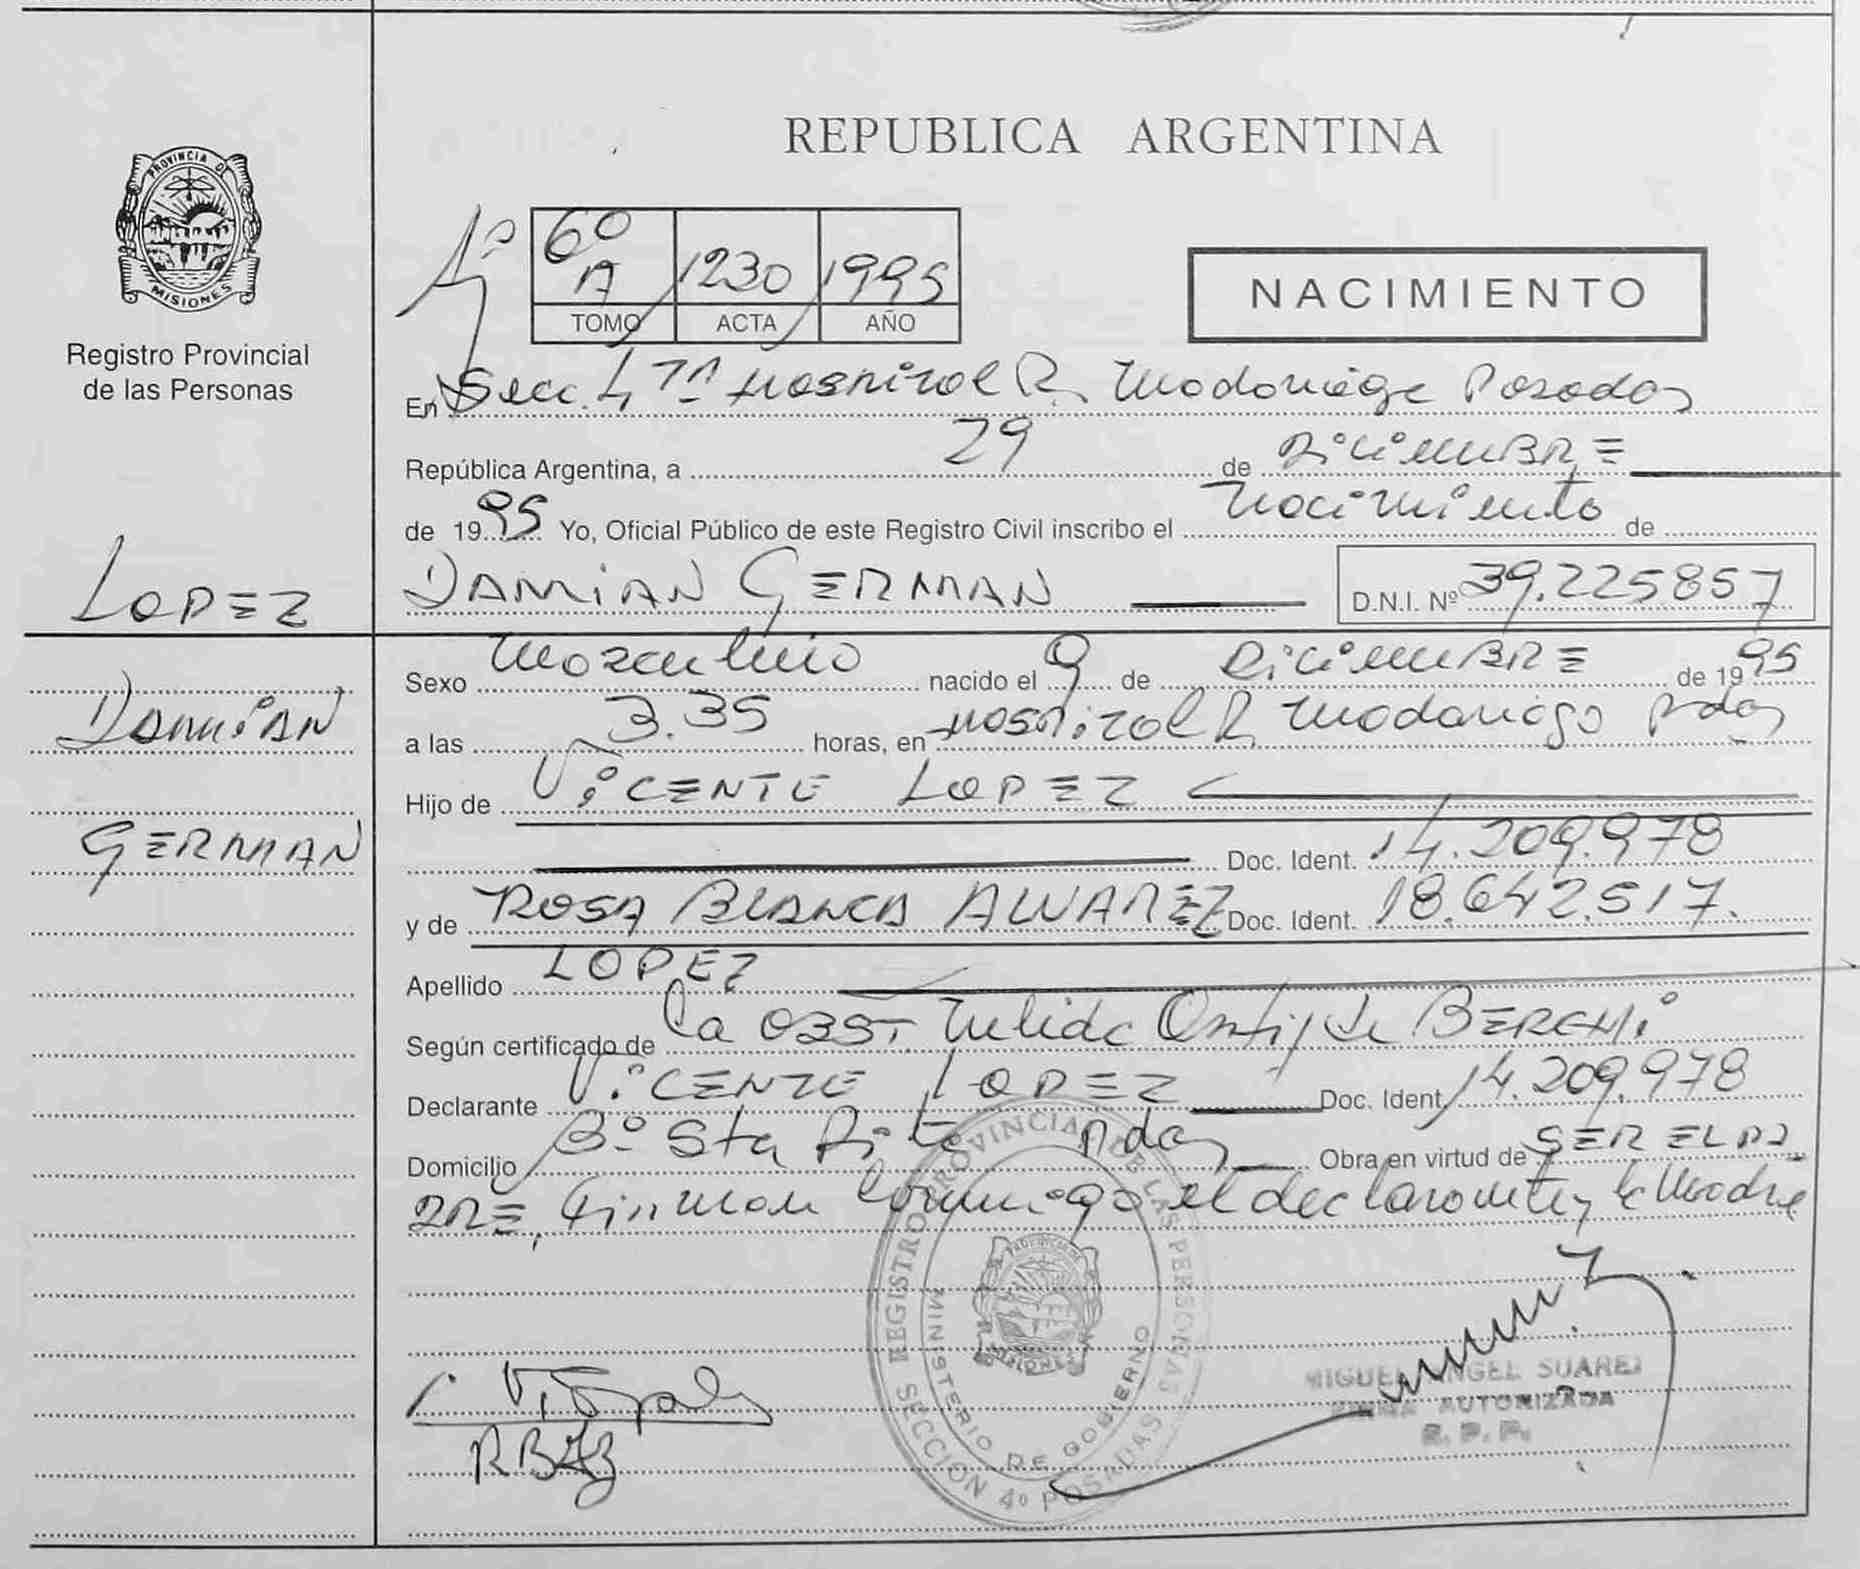 REPUBLICA ARGENTINA
PROVINCIA DE
MISIONES
Registro Provincial
de las Personas
6º
A 1230 1995
TOMO ACTA AÑO
NACIMIENTO
En Secc. 4ta Hospital R. Madariaga Posadas
República Argentina, a 29 de DiciemBRE
de 1995 Yo, Oficial Público de este Registro Civil inscribo el Nacimiento de
LOPEZ
DAMIAN GERMAN D.N.I. Nº 39.225857
Sexo Masculino nacido el 9 de DiciemBRE de 1995
DAMIAN
a las 3.35 horas, en Hospital R. Madariaga Pdas
Hijo de ViCENTE LOPEZ
GERMAN
Doc. Ident. 14.209.978
y de ROSA BLANCA ALVAREZ Doc. Ident. 18.642.517.
Apellido LOPEZ
Según certificado de La OBST. Nelida Ortiz de BERCHi
Declarante ViCENTE LOPEZ Doc. Ident. 14.209.978
Domicilio Bº Sta Rita Pdas Obra en virtud de SER EL PA
DRE, Firman conmigo el declarante y la Madre
REGISTRO PROVINCIAL DE LAS PERSONAS
MINISTERIO DE GOBIERNO
PROVINCIA DE
MISIONES
SECCION 4º POSADAS
MIGUEL ANGEL SUAREZ
FIRMA AUTORIZADA
R. P. P.